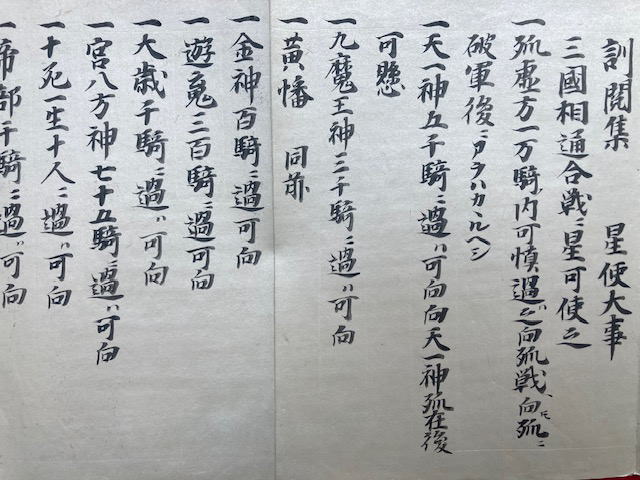 訓閲集　星使大事
三國相通合戦ニ星可使之
一孤虚方一万騎ノ内可慎過ハ之向孤戦、向孤ニ
破軍後ニアラハカヽルヘシ
一天一神五千騎ニ過ハ可向向天一神孤在後
可懸
一九魔王神三千騎ニ過ハ可向
一黄幡　同前
一金神百騎ニ過可向
一遊鬼三百騎ニ過可向
一大歳千騎ニ過ハ可向
一宮八方神七十五騎ニ過ハ可向
一十死一生十人ニ過ハ可向
一帝部千騎ニ過ハ可向